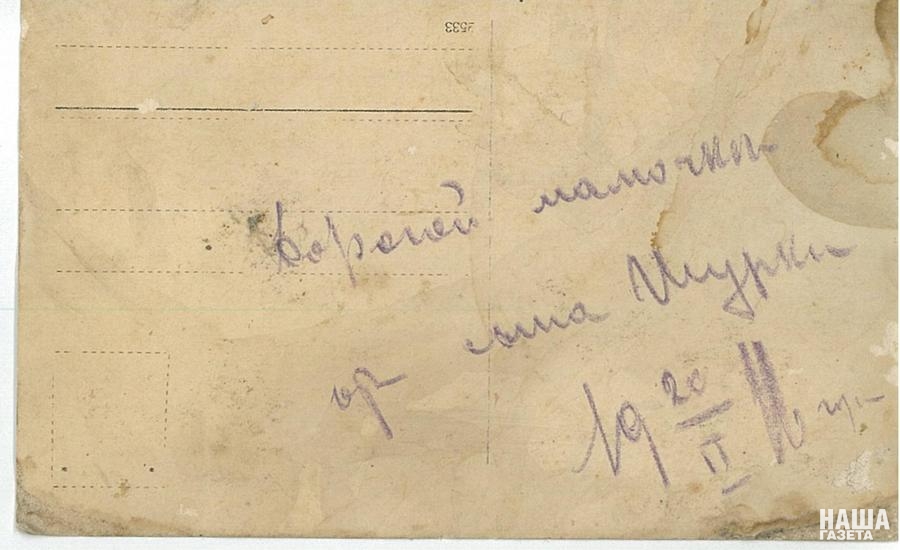 2533
Дорогой мамочки
от сына Шурки
19 20/II 16 г.
НАША
ГАЗЕТА